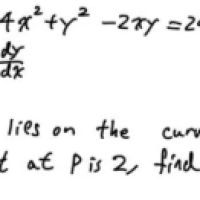 4x² + y² - 2xy = 2
dy/dx
lies on the cur
t at P is 2, find